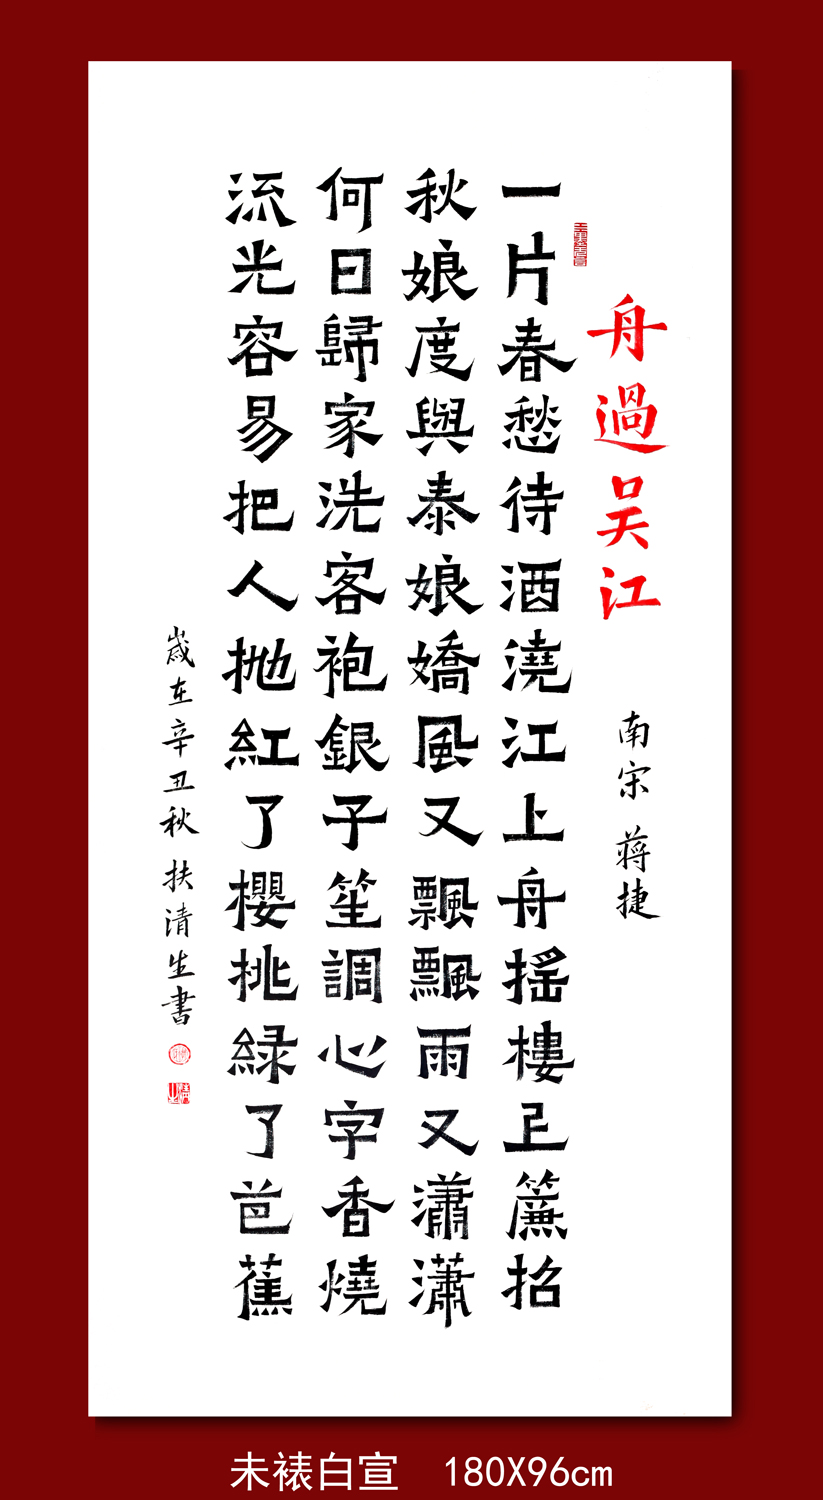 舟過吴江
南宋 蔣捷
一片春愁待酒澆江上舟搖樓上簾招
秋娘度與泰娘嬌風又飄飄雨又瀟瀟
何日歸家洗客袍銀子笙調心字香燒
流光容易把人抛紅了櫻桃緑了芭蕉
歲在辛丑秋 扶清生書
未裱白宣 180X96cm